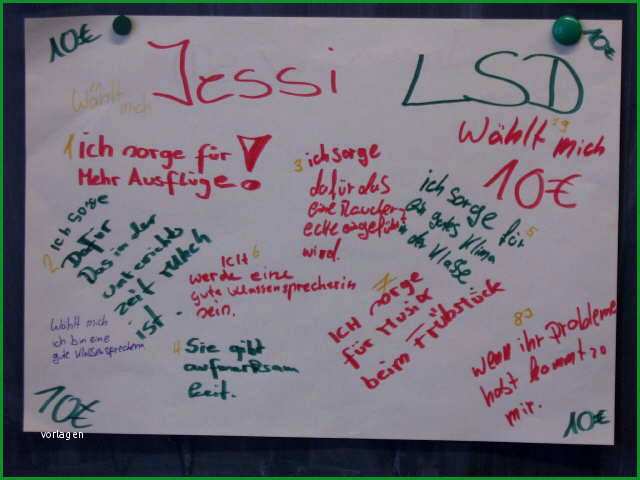 10€
10€
Jessi LSD
Wählt
mich
Wählt mich
10€
1 ich sorge für
Mehr Ausflüge!
2 ich sorge
Dafür
Das in der
unterichts
zeit
ist.
3 ich sorge
dafür das
eine Raucher
ecke eingeführt
wird.
4 Sie gibt
aufmerksam
keit.
5
ich sorge für
ein gutes Klima
in der Klasse
6
ICH
werde eine
gute Klassensprecherin
sein.
7
ICH sorge
für Musik
beim Frübstück
8
wenn ihr Probleme
habt kommt zu
mir.
9
Wählt mich
ich bin eine
gute Klassensprecherin
10€
10€
vorlagen